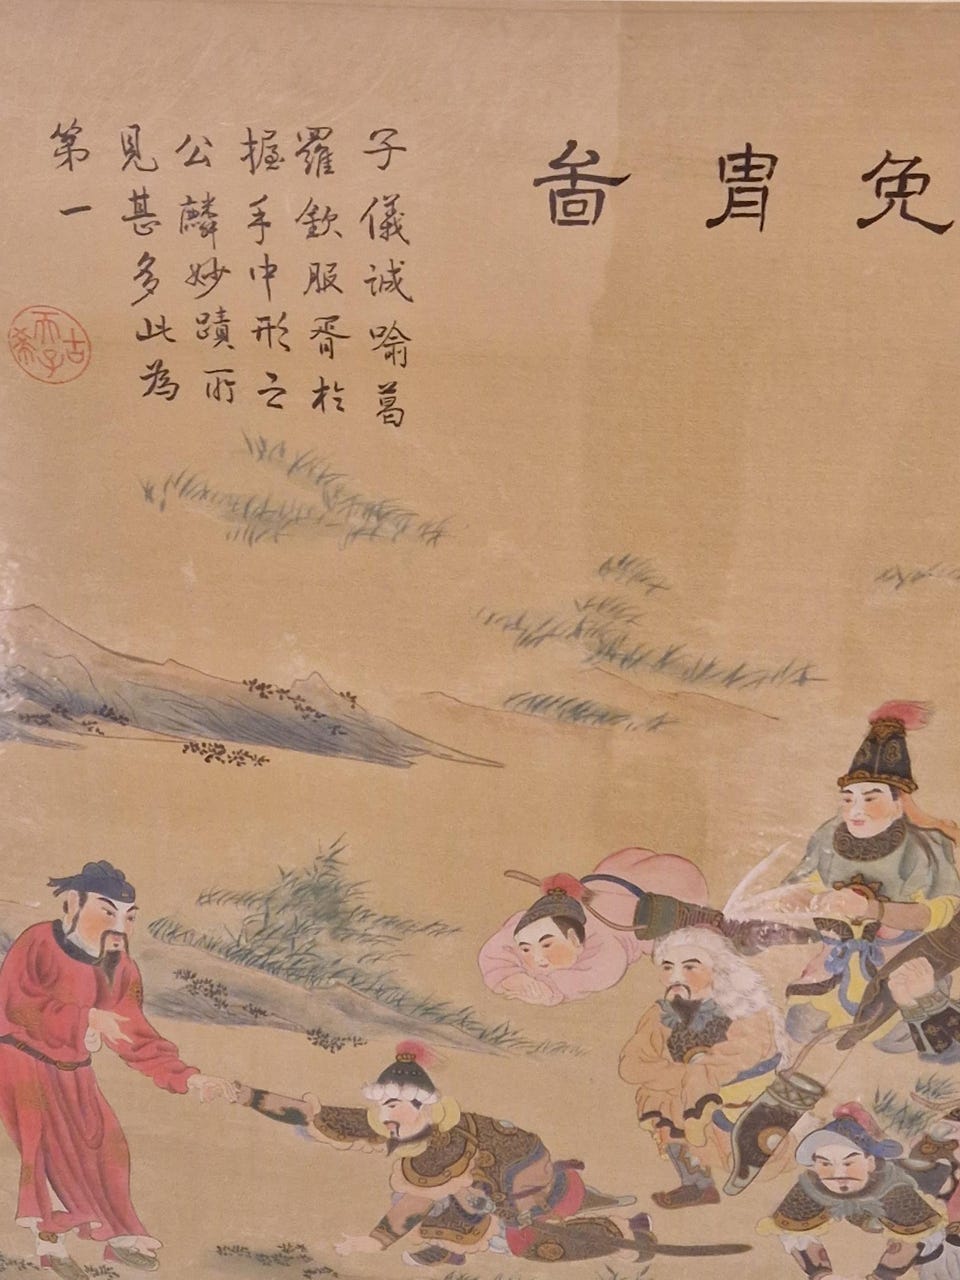 免冑啚
子儀誠喻葛
羅欽服胥於
握手中形之
公麟妙蹟所
見甚多此為
第一
古希天子